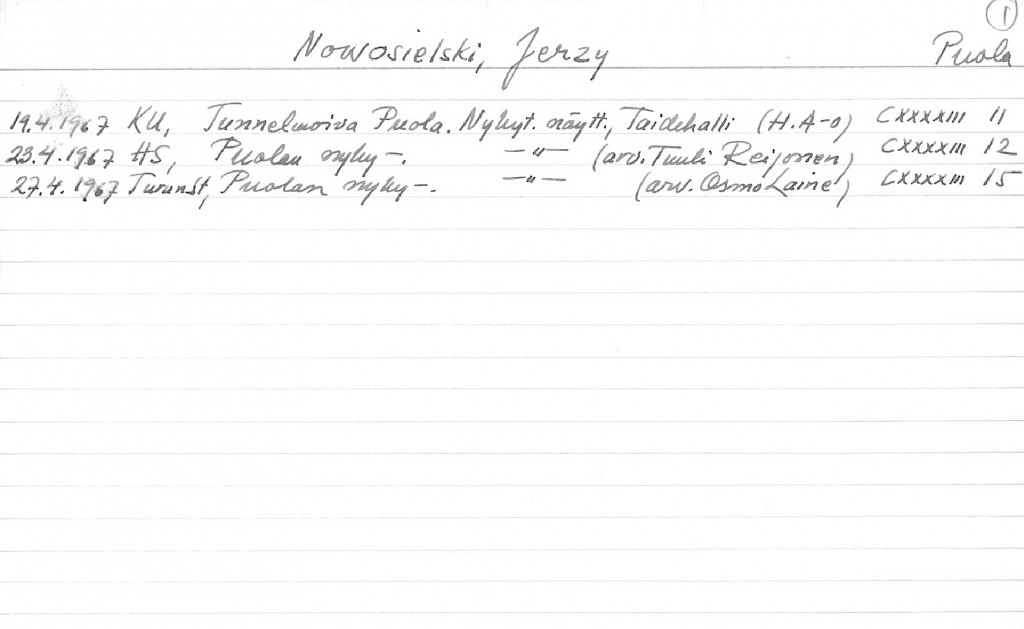 1
Nowosielski, Jerzy Puola
19.4.1967 KU, Tunnelmoiva Puola. Nykyt. näytt., Taidehalli (H.A-o) CXXXXIII 11
23.4.1967 HS, Puolan nyky-. —"— (arv. Tuuli Reijonen) CXXXXIII 12
27.4.1967 TurunSt, Puolan nyky-. —"— (arv. Osmo Laine) CXXXXIII 15